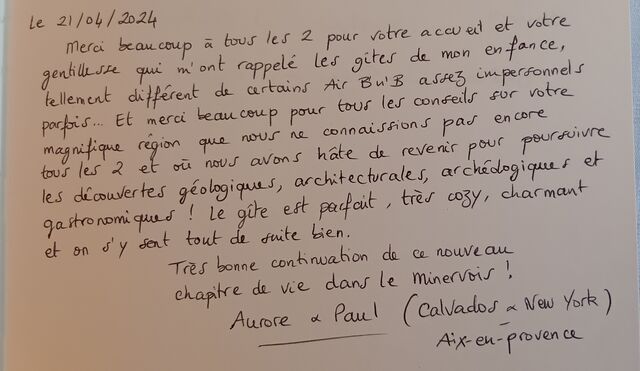 Le 21/04/2024
Merci beaucoup à tous les 2 pour votre accueil et votre
gentillesse qui m'ont rappelé les gîtes de mon enfance,
tellement différent de certains Air B n'B assez impersonnels
parfois... Et merci beaucoup pour tous les conseils sur votre
magnifique région que nous ne connaissions pas encore
tous les 2 et où nous avons hâte de revenir pour poursuivre
les découvertes géologiques, architecturales, archéologiques et
gastronomiques ! Le gîte est parfait, très cozy, charmant
et on s'y sent tout de suite bien.
Très bonne continuation de ce nouveau
chapitre de vie dans le Minervois !
Aurore & Paul (Calvados & New York)
Aix-en-provence